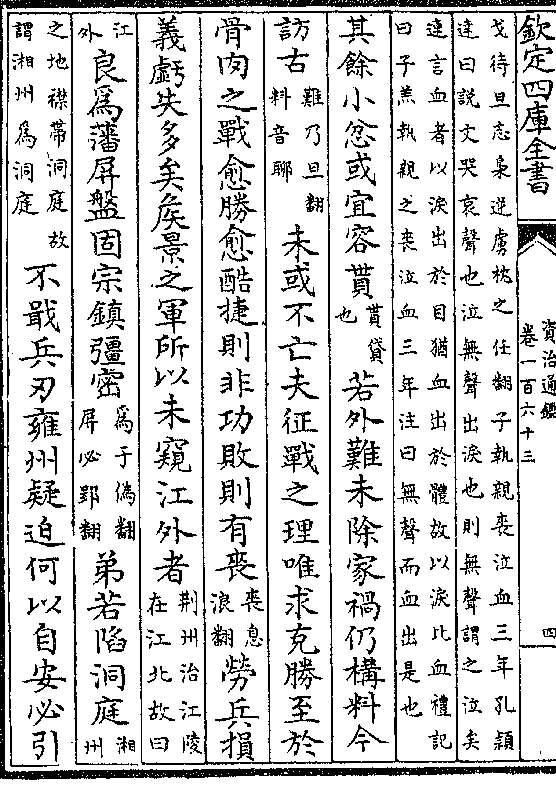 欽定四庫全書
資治通鑑
卷一百六十三
四
戈待旦志梟逆虜枕之任翻子執親喪泣血三年孔穎
達曰說文哭哀聲也泣無聲出淚也則無聲謂之泣矣
連言血者以淚出於目猶血出於體故以淚比血禮記
曰子羔執親之喪泣血三年注曰無聲而血出是也
其餘小忿或宜容貰貰貸也若外難未除家禍仍構料今
訪古難乃旦翻料音聊未或不亡夫征戰之理唯求克勝至於
骨肉之戰愈勝愈酷捷則非功敗則有喪喪息浪翻勞兵損
義虧失多矣矦景之軍所以未窺江外者荆州治江陵在江北故曰
江外良為藩屏盤固宗鎮彊密為于偽翻屏必郢翻弟若陷洞庭湘州
之地襟帶洞庭故謂湘州為洞庭不戢兵刃雍州疑迫何以自安必引